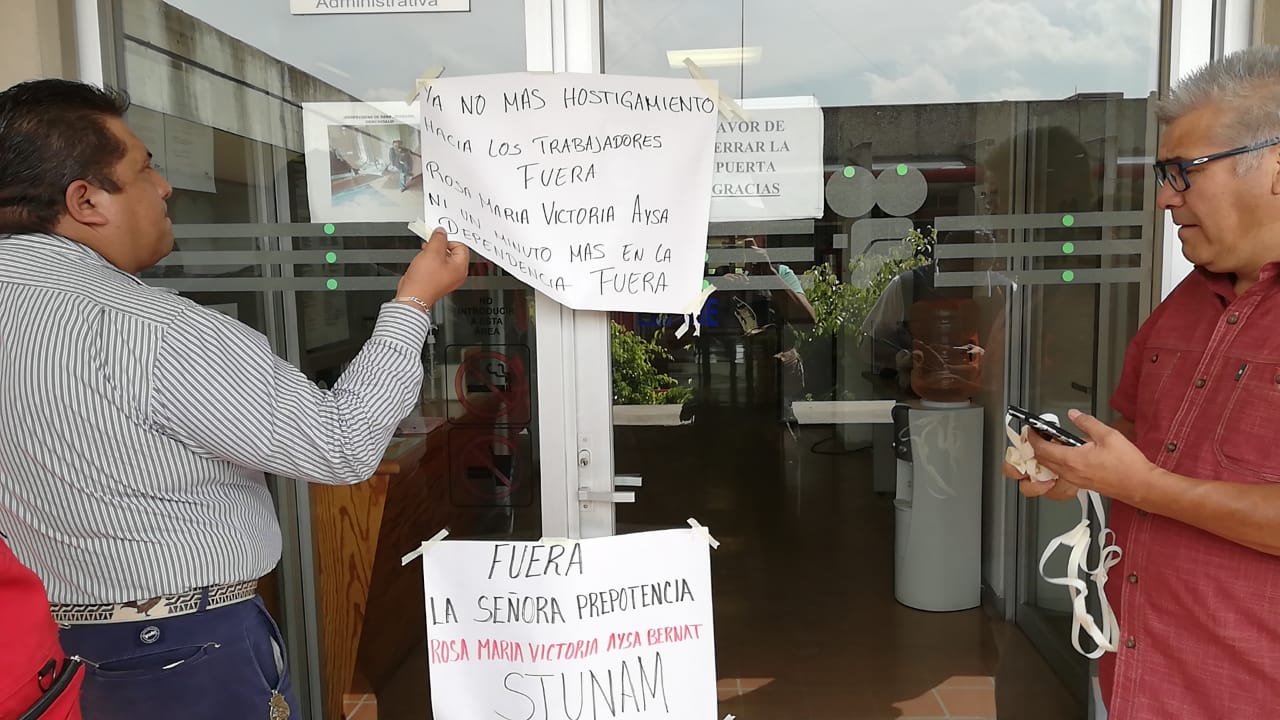 Administrativa
YA NO MAS HOSTIGAMIENTO
HACIA LOS TRABAJADORES
FUERA
ROSA MARIA VICTORIA AYSA
NI UN MINUTO MAS EN LA
DEPENDENCIA FUERA
AVOR DE
ERRAR LA
PUERTA
GRACIAS
NO
INTRODUCIR
A ESTA
ÁREA
FUERA
LA SEÑORA PREPOTENCIA
ROSA MARIA VICTORIA AYSA BERNAT
STUNAM